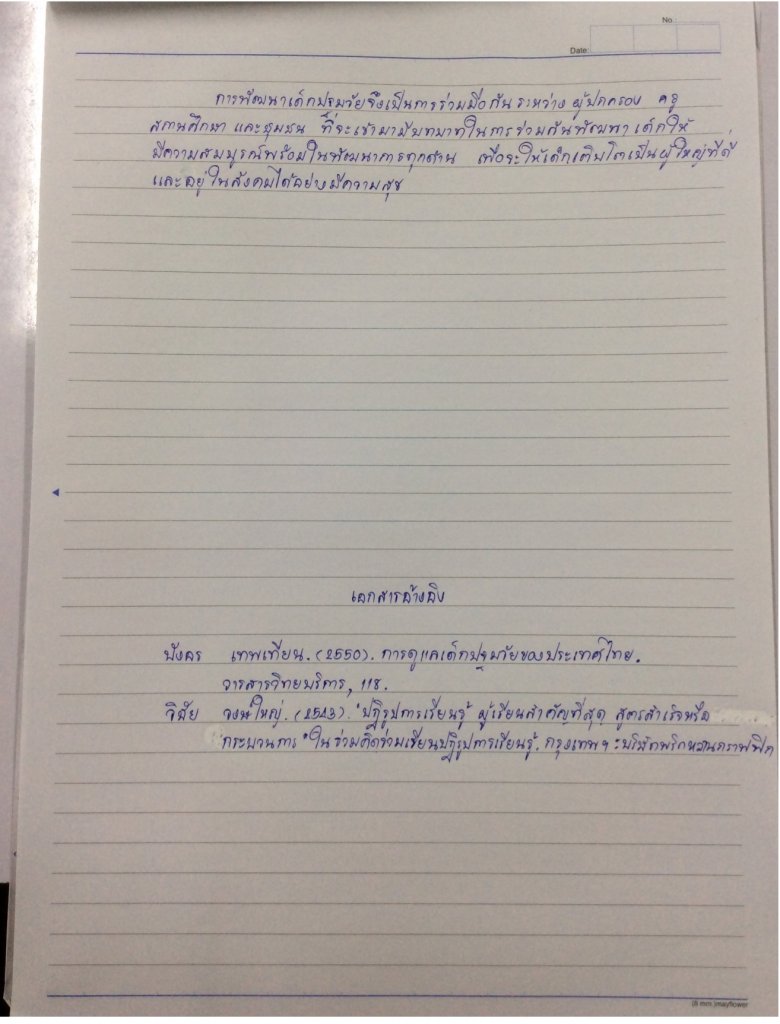 No.:
Date:
การพัฒนาเด็กปฐมวัยจึงเป็นการร่วมมือกัน ระหว่าง ผู้ปกครอง ครู
สถานศึกษา และชุมชน ที่จะเข้ามามีบทบาทในการร่วมกันพัฒนา เด็กให้
มีความสมบูรณ์พร้อมในพัฒนาการทุกด้าน เพื่อจะให้เด็กเติบโตเป็นผู้ใหญ่ที่ดี
และอยู่ในสังคมได้อย่างมีความสุข
เอกสารอ้างอิง
บังอร เทพเทียน. (2550). การดูแลเด็กปฐมวัยของประเทศไทย.
วารสารวิทยบริการ, 118.
วิชัย วงษ์ใหญ่. (2543). "ปฏิรูปการเรียนรู้ ผู้เรียนสำคัญที่สุด สูตรสำเร็จหรือ
กระบวนการ" ใน ร่วมคิดร่วมเขียนปฏิรูปการเรียนรู้. กรุงเทพฯ : บริษัทพริกหวานกราฟฟิค
(8 mm.)mayflower